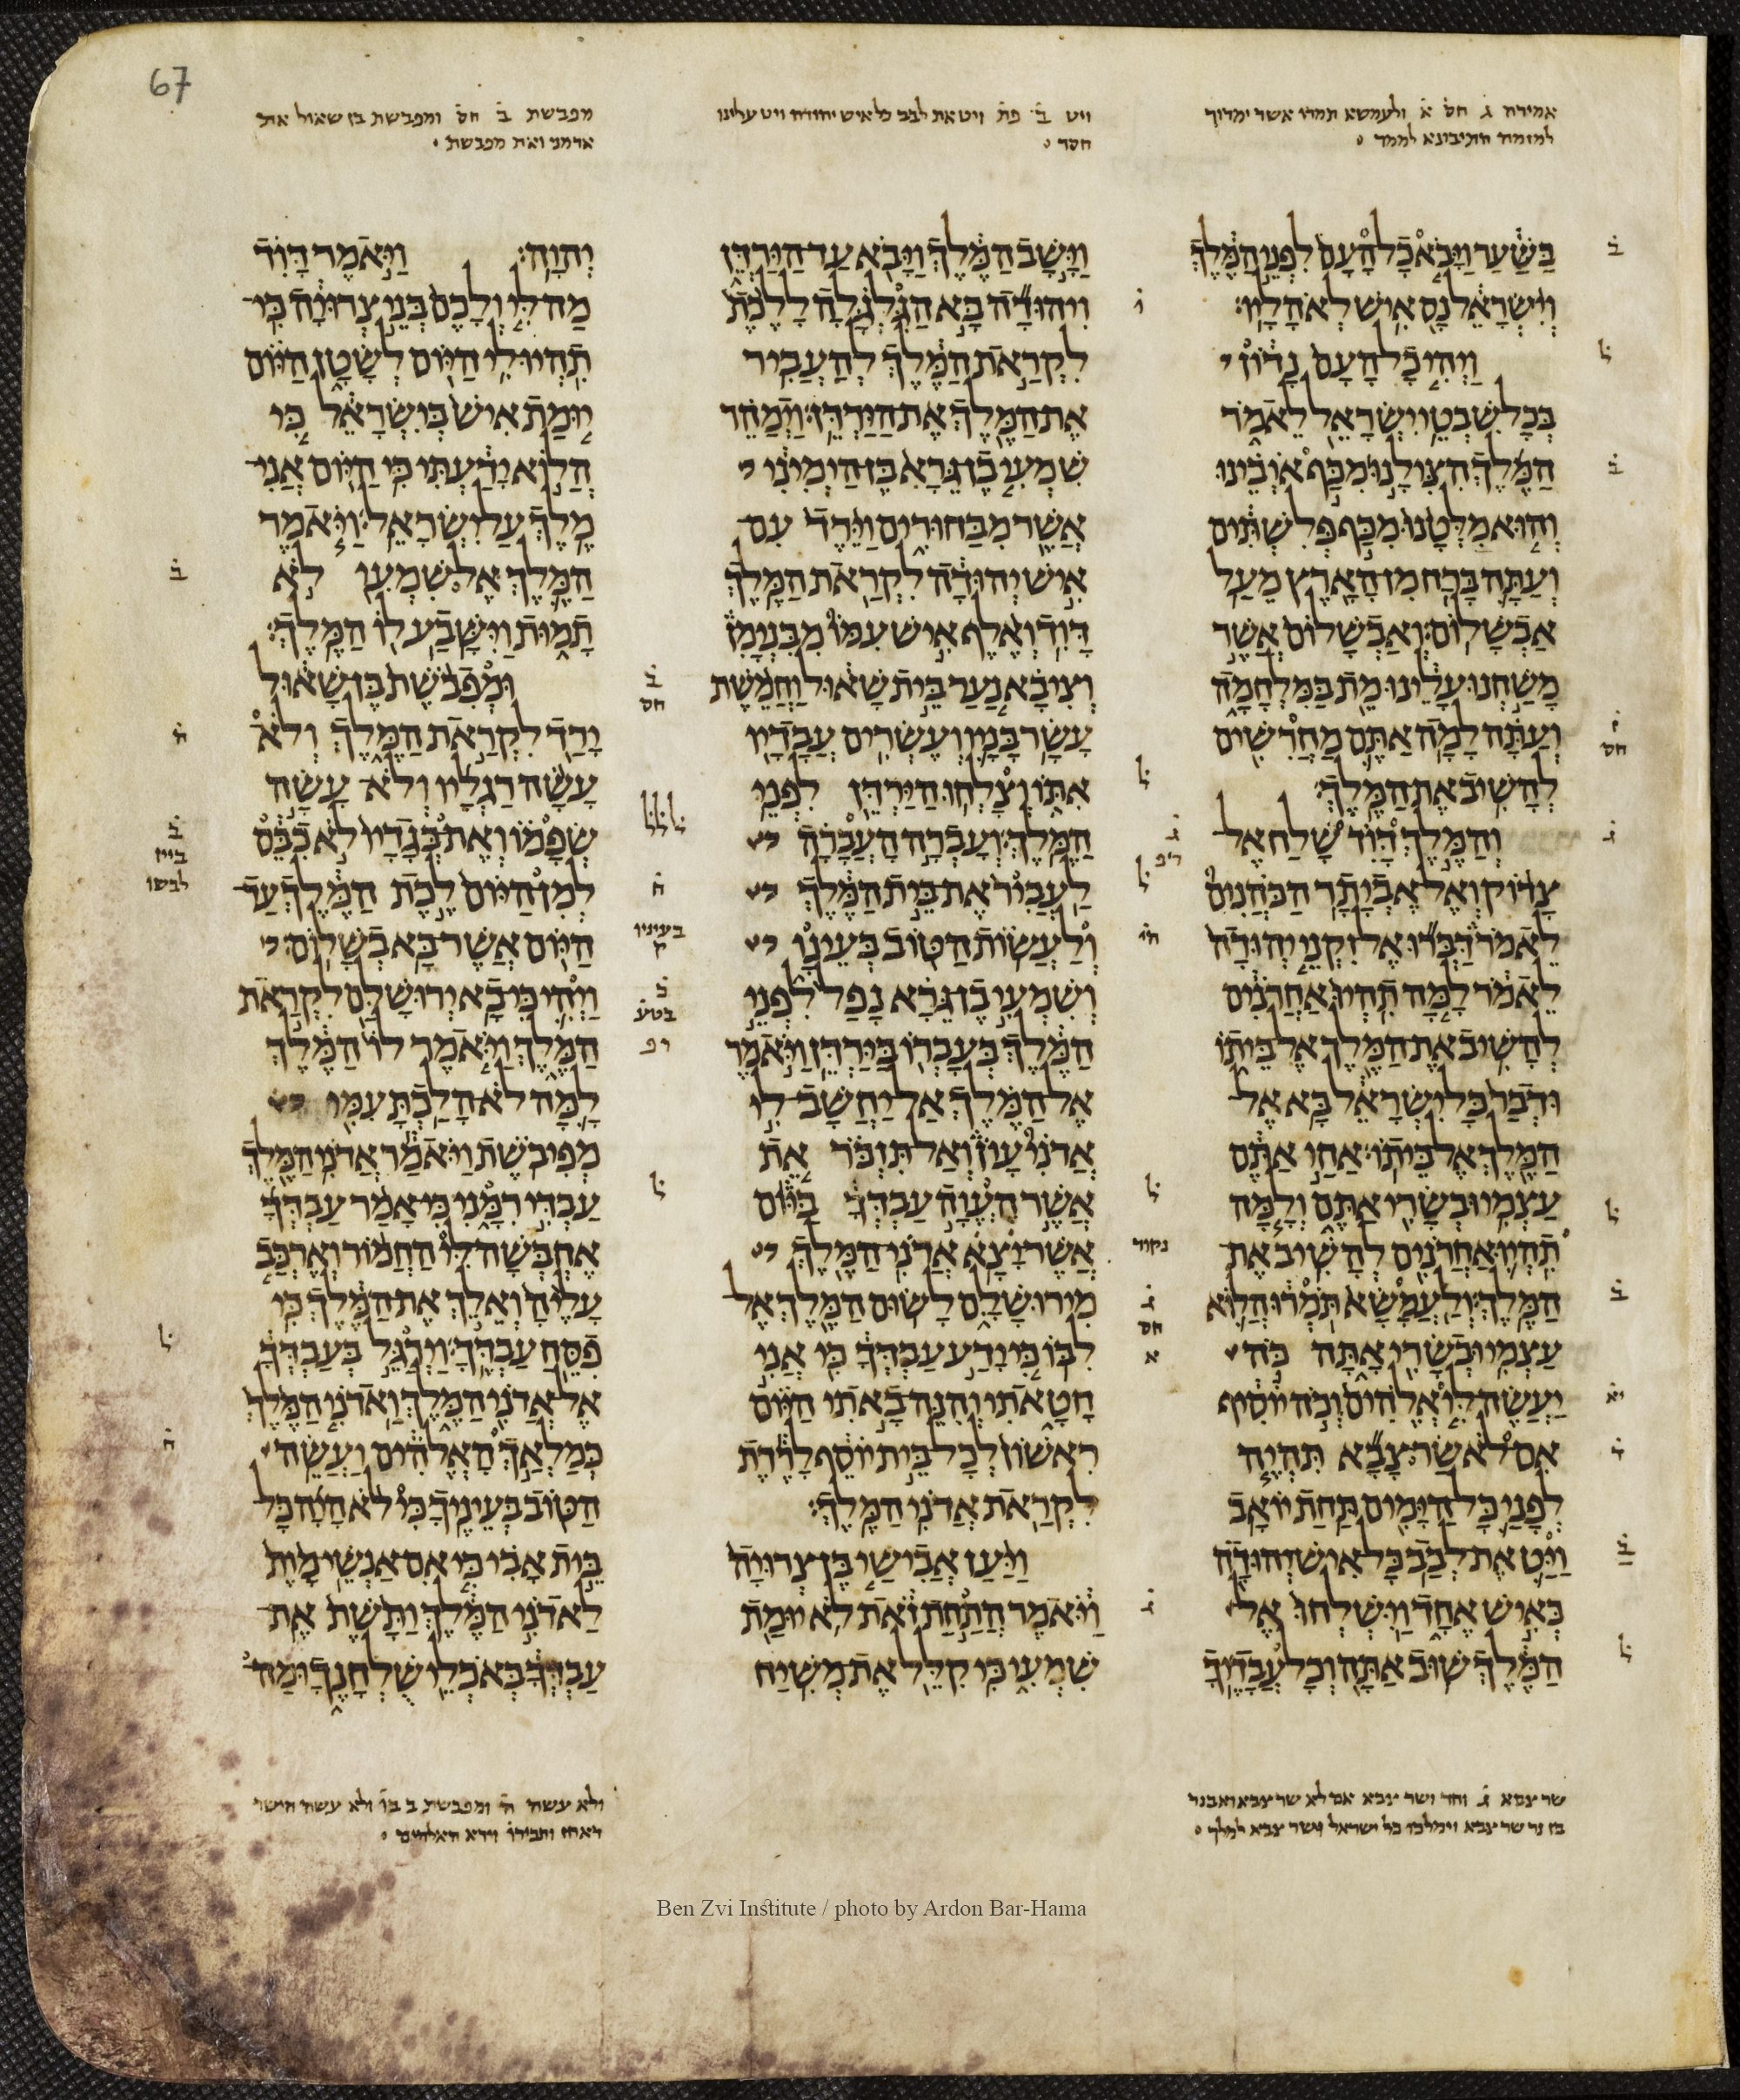 67
ולעמשא תמרו אשר ימרוך
למזמה
ויט ב פת ויט את לבב כל איש יהודה ויט עלינו
חסד
מפבשת ב חס ומפבשת בן שאול את
ארמני ואת מפבשת
בשער ויבא כל העם לפני המלך
וישראל נס איש לאהליו׃
ויהי כל העם נדון
בכל שבטי ישראל לאמר
המלך הצילנו מכף איבינו
והוא מלטנו מכף פלשתים
ועתה ברח מן הארץ מעל
אבשלום׃ ואבשלום אשר
משחנו עלינו מת במלחמה
ועתה למה אתם מחרשים
להשיב את המלך׃
והמלך דוד שלח אל
צדוק ואל אביתר הכהנים
לאמר דברו אל זקני יהודה
לאמר למה תהיו אחרנים
להשיב את המלך אל ביתו
ודבר כל ישראל בא אל
המלך אל ביתו׃ אחי אתם
עצמי ובשרי אתם ולמה
תהיו אחרנים להשיב את
המלך׃ ולעמשא תמרו הלוא
עצמי ובשרי אתה כה
יעשה לי אלהים וכה יוסיף
אם לא שר צבא תהיה
לפני כל הימים תחת יואב׃
ויט את לבב כל איש יהודה
כאיש אחד וישלחו אל
המלך שוב אתה וכל עבדיך׃
וישב המלך ויבא עד הירדן
ויהודה בא הגלגלה ללכת
לקראת המלך להעביר
את המלך את הירדן׃ וימהר
שמעי בן גרא בן הימיני
אשר מבחורים וירד עם
איש יהודה לקראת המלך
דוד׃ ואלף איש עמו מבנימן
וציבא נער בית שאול וחמשת
עשר בניו ועשרים עבדיו
אתו וצלחו הירדן לפני
המלך׃ ועברה העברה
לעביר את בית המלך
ולעשות הטוב בעינו
ושמעי בן גרא נפל לפני
המלך בעברו בירדן׃ ויאמר
אל המלך אל יחשב לי
אדני עון ואל תזכר את
אשר העוה עבדך ביום
אשר יצא אדני המלך
מירושלם לשום המלך אל
לבו׃ כי ידע עבדך כי אני
חטאתי והנה באתי היום
ראשון לכל בית יוסף לרדת
לקראת אדני המלך׃
ויען אבישי בן צרויה
ויאמר התחת זאת לא יומת
שמעי כי קלל את משיח
יהוה׃ ויאמר דוד
מה לי ולכם בני צרויה כי
תהיו לי היום לשטן היום
יומת איש בישראל כי
הלוא ידעתי כי היום אני
מלך על ישראל׃ ויאמר
המלך אל שמעי לא
תמות וישבע לו המלך׃
ומפבשת בן שאול
ירד לקראת המלך ולא
עשה רגליו ולא עשה
שפמו ואת בגדיו לא כבס
למן היום לכת המלך עד
היום אשר בא בשלום׃
ויהי כי בא ירושלם לקראת
המלך ויאמר לו המלך
למה לא הלכת עמי
מפיבשת׃ ויאמר אדני המלך
עבדי רמני כי אמר עבדך
אחבשה לי החמור וארכב
עליה ואלך את המלך כי
פסח עבדך׃ וירגל בעבדך
אל אדני המלך ואדני המלך
כמלאך האלהים ועשה
הטוב בעיניך׃ כי לא היה כל
בית אבי כי אם אנשי מות
לאדני המלך ותשת את
עבדך באכלי שלחנך ומה
שר צבא ג וחד ושר צבא אם לא שר צבא ואבנר
בן נר שר צבא וימלכו כל ישראל עשר צבא למלך
ולא עשה ה ומפבשת ב בו ולא עשה הישר
וירא האלהים
Ben Zvi Institute / photo by Ardon Bar-Hama